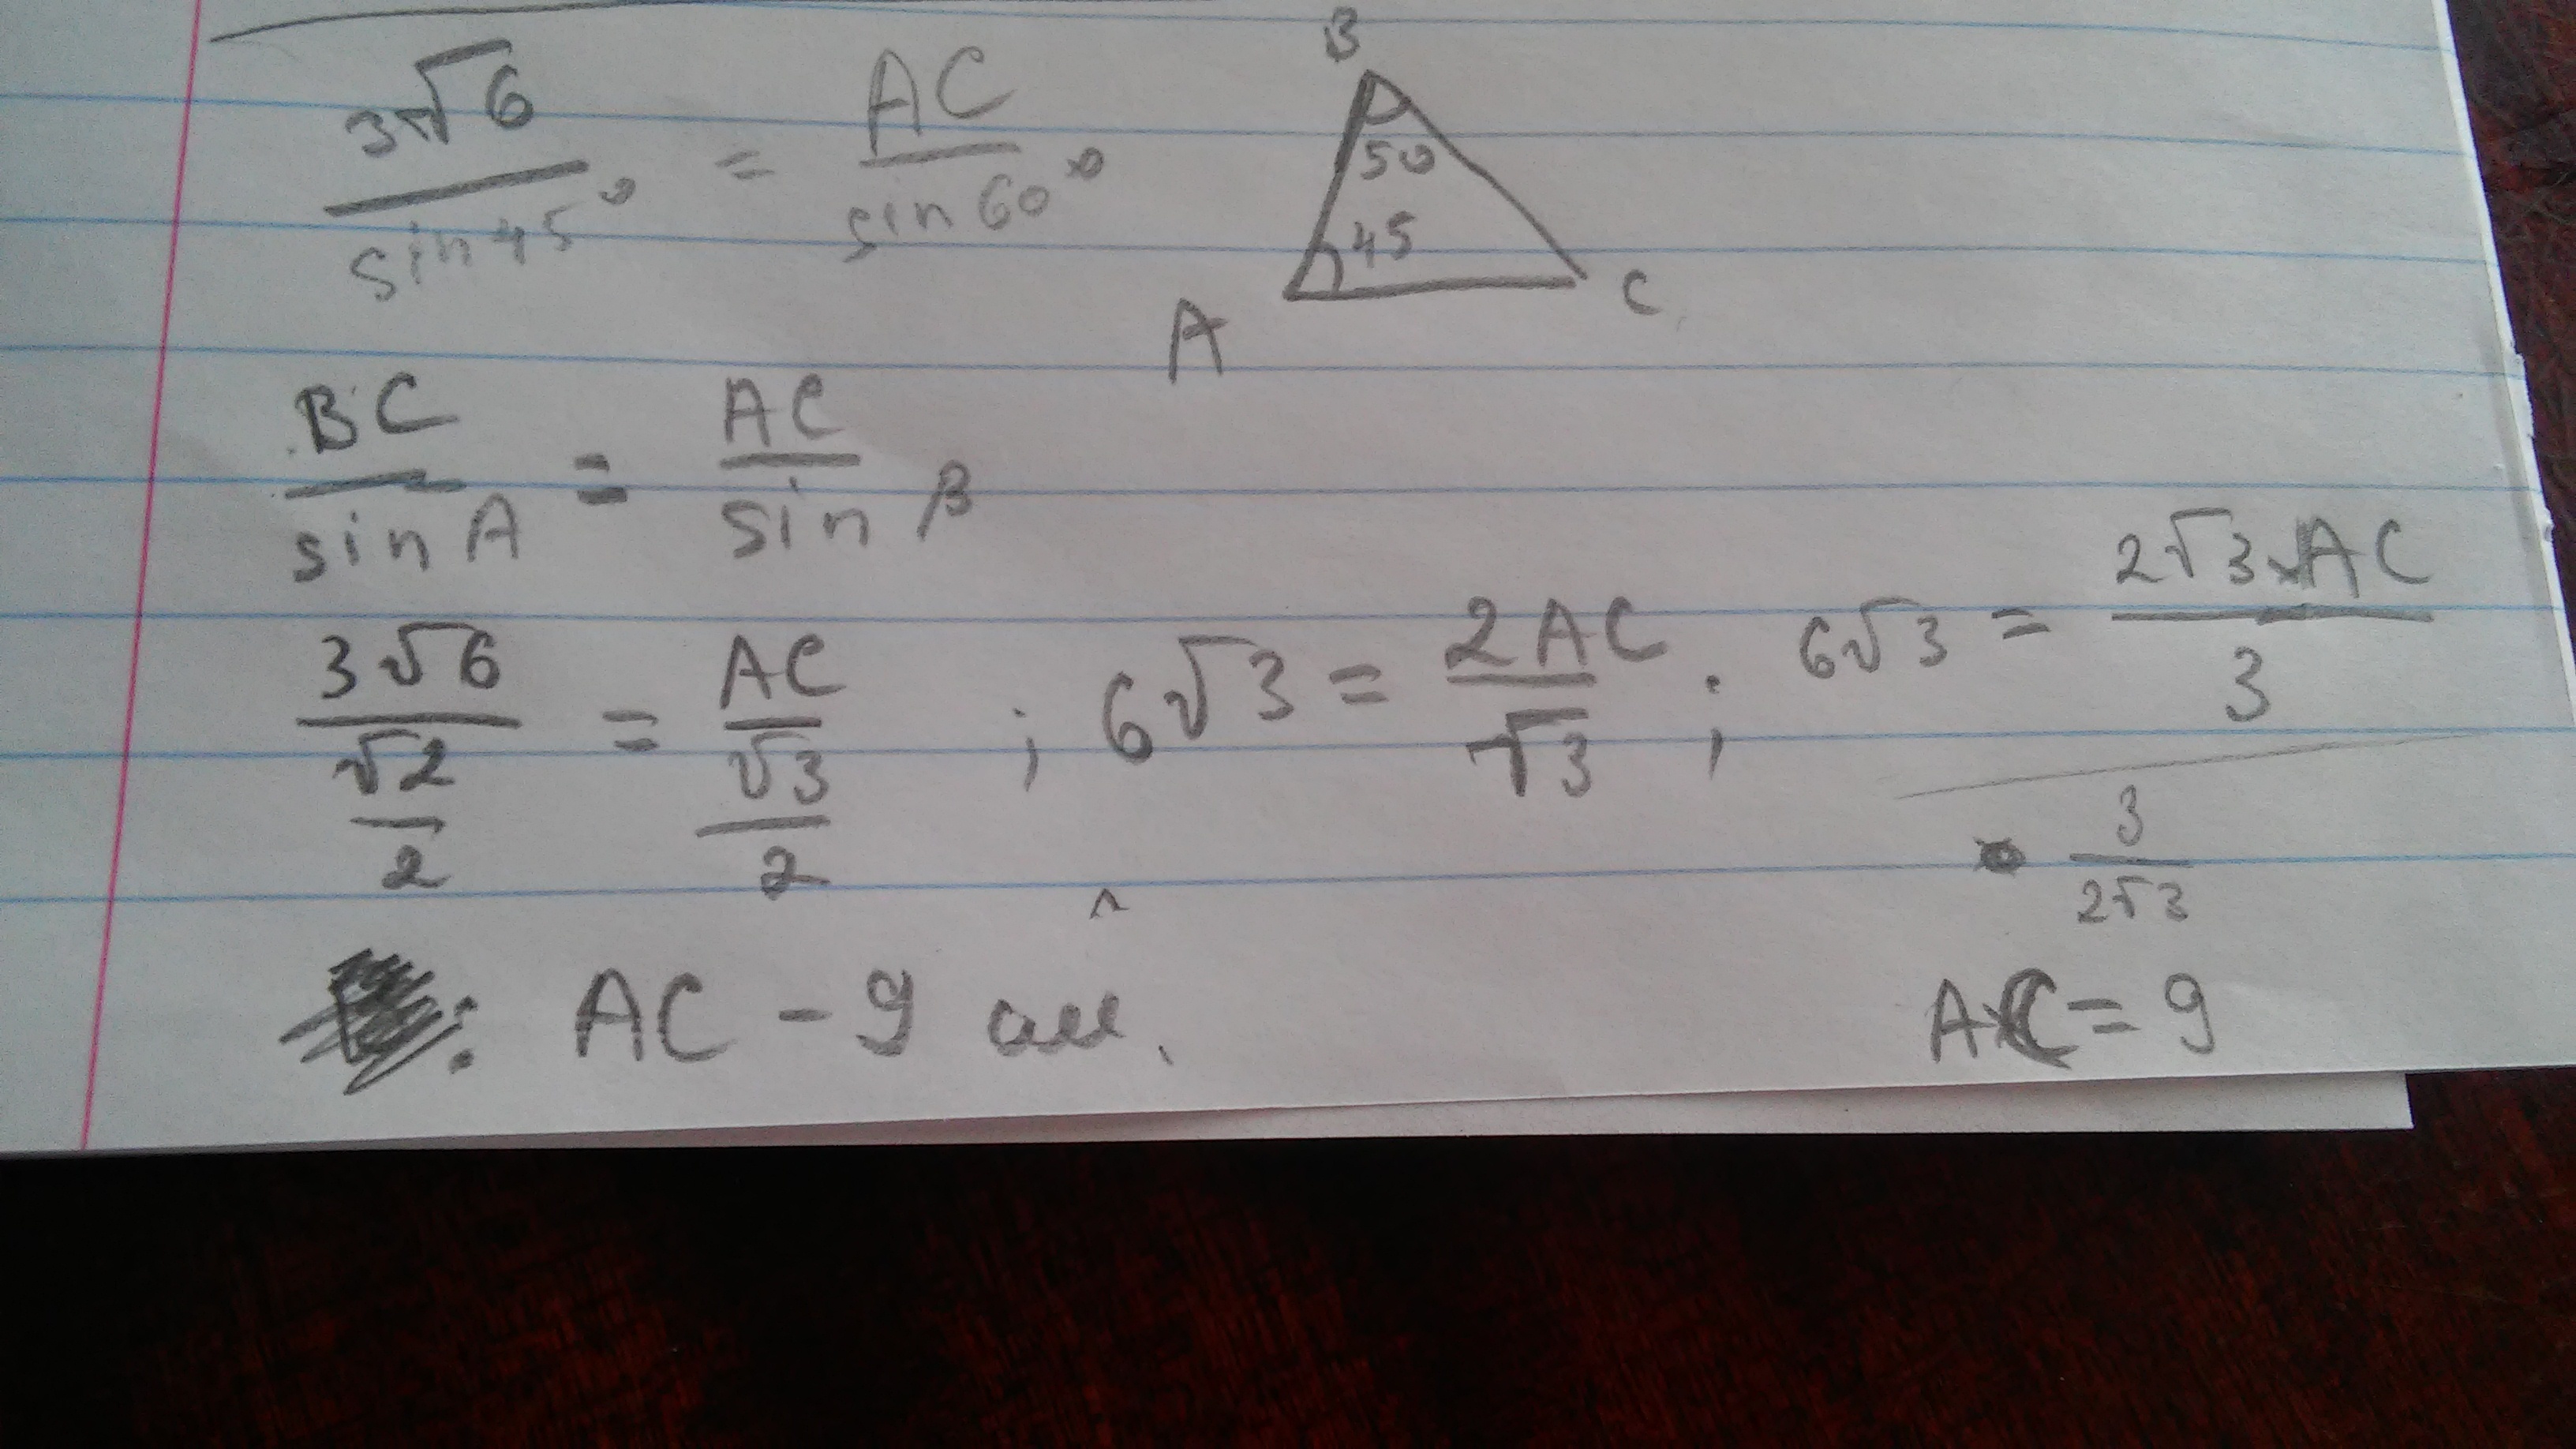 3√6 / sin 45° = AC / sin 60°
B
50
45
A
C
BC / sin A = AC / sin β
3√6 / (√2 / 2) = AC / (√3 / 2) ; 6√3 = 2AC / √3 ; 6√3 = 2√3 × AC / 3
3 / 2√3
: AC - 9 см.
AC = 9